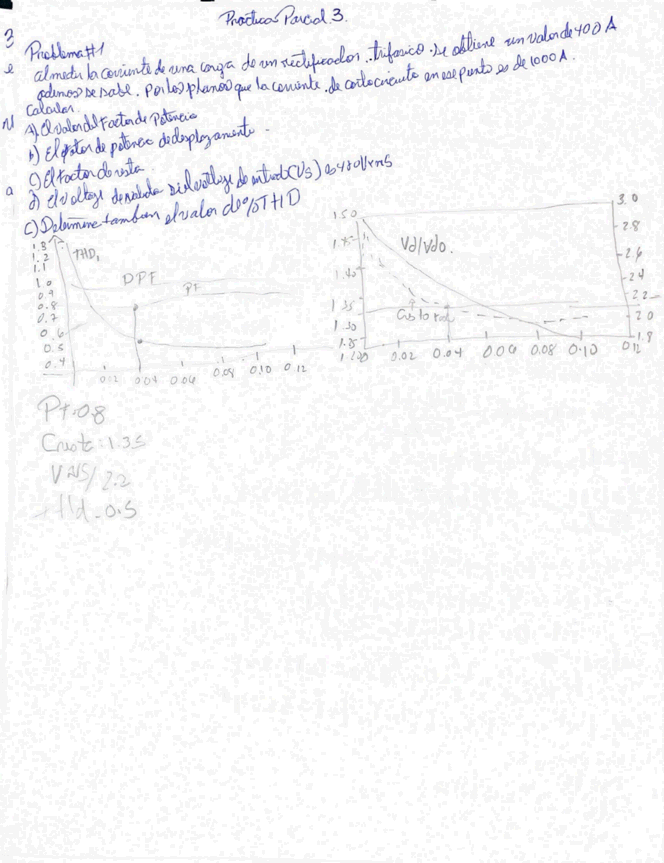 Practica Parcial 3.
3
Problema #1
e al medir la corriente de una carga de un rectificador trifasico. Se obtiene un valor de 400 A
ademas se sabe. Por los planos que la corriente de cortocircuito en ese punto es de 1000 A.
Calcular.
A) El valor del Factor de Potencia
b) El factor de potencia de desplazamiento.
C) El factor de cresta
a d) El voltage de salida si el voltage de entrada (Vs) es 480 Vrms
C) Determine tambien el valor de % THD
1.3
1.2
1.1
1.0
0.9
0.8
0.7
0.6
0.5
0.4
THD,
DPF
PF
0.2 0.04 0.06 0.08 0.10 0.12
1.50
1.45
1.40
1.35
1.30
1.25
1.20
Vd/Vdo.
3.0
2.8
2.6
2.4
2.2
2.0
1.8
0.02 0.04 0.06 0.08 0.10 0.12
Pf.0.8
Cresta: 1.35
2.2
0.5